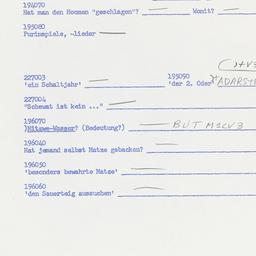 194070
Hat man den Hooman "geschlagen"? Womit?
195080
Purimspiele, -lieder
227003 195090
'ein Schaltjahr' 'der 2. Oder
227004
"Schewat ist kein ..."
196070
)Mitswe-Wasser? (Bedeutung?) BUT M1CV3
196040
Hat jemand selbst Matze gebacken?
196050
'besonders bewahrte Matze'
196060
'den Sauerteig aussuchen'